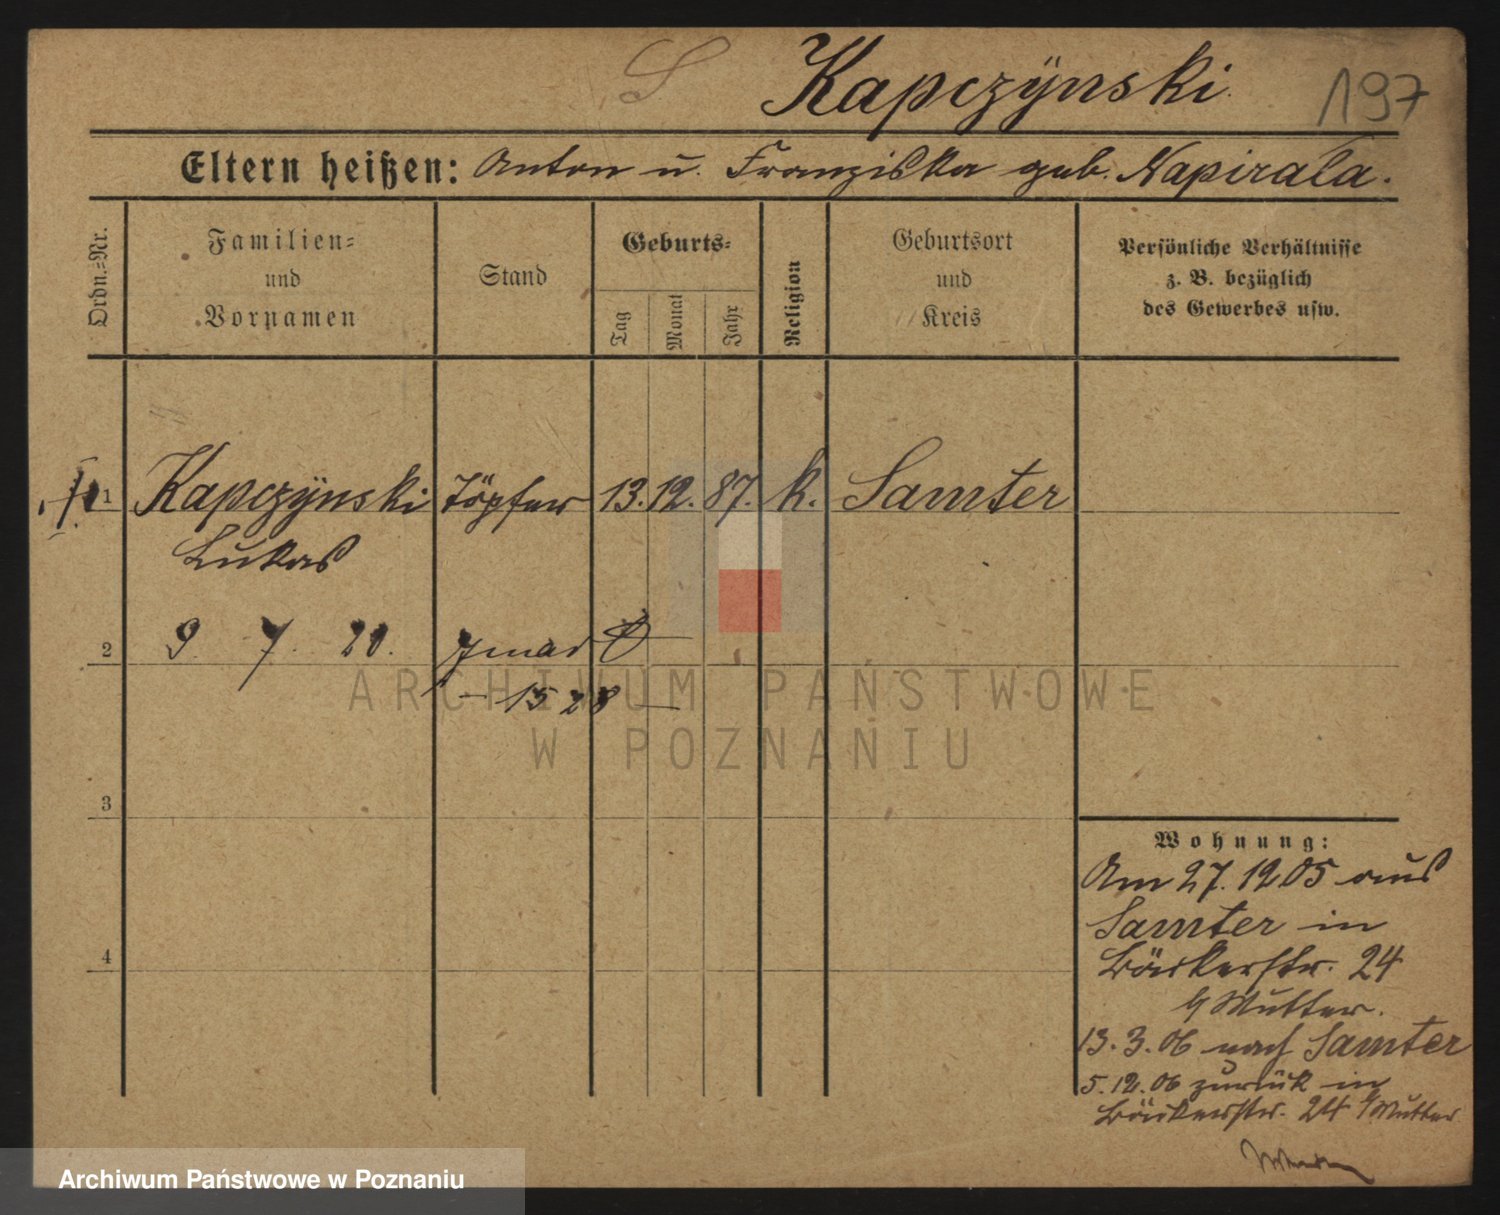 S Kapczÿnski. 197
Eltern heißen: Anton u. Franziska geb. Napirala.
Ordn.=Nr.
Familien=
und
Vornamen
Stand
Geburts=
Tag
Monat
Jahr
Religion
Geburtsort
und
Kreis
Persönliche Verhältnisse
z. B. bezüglich
des Gewerbes usw.
1 Kapczÿnski Töpfer 13. 12. 87. k. Samter
Lukas
2 9 7 20.
— 1528 —
3
4
Wohnung:
Am 27.12 05 aus
Samter in
Bäckerstr. 24
b/ Mutter.
13.3.06 nach Samter
5.12.06 zurück in
Bäckerstr. 24 b/ Mutter
ARCHIWUM PAŃSTWOWE
W POZNANIU
Archiwum Państwowe w Poznaniu